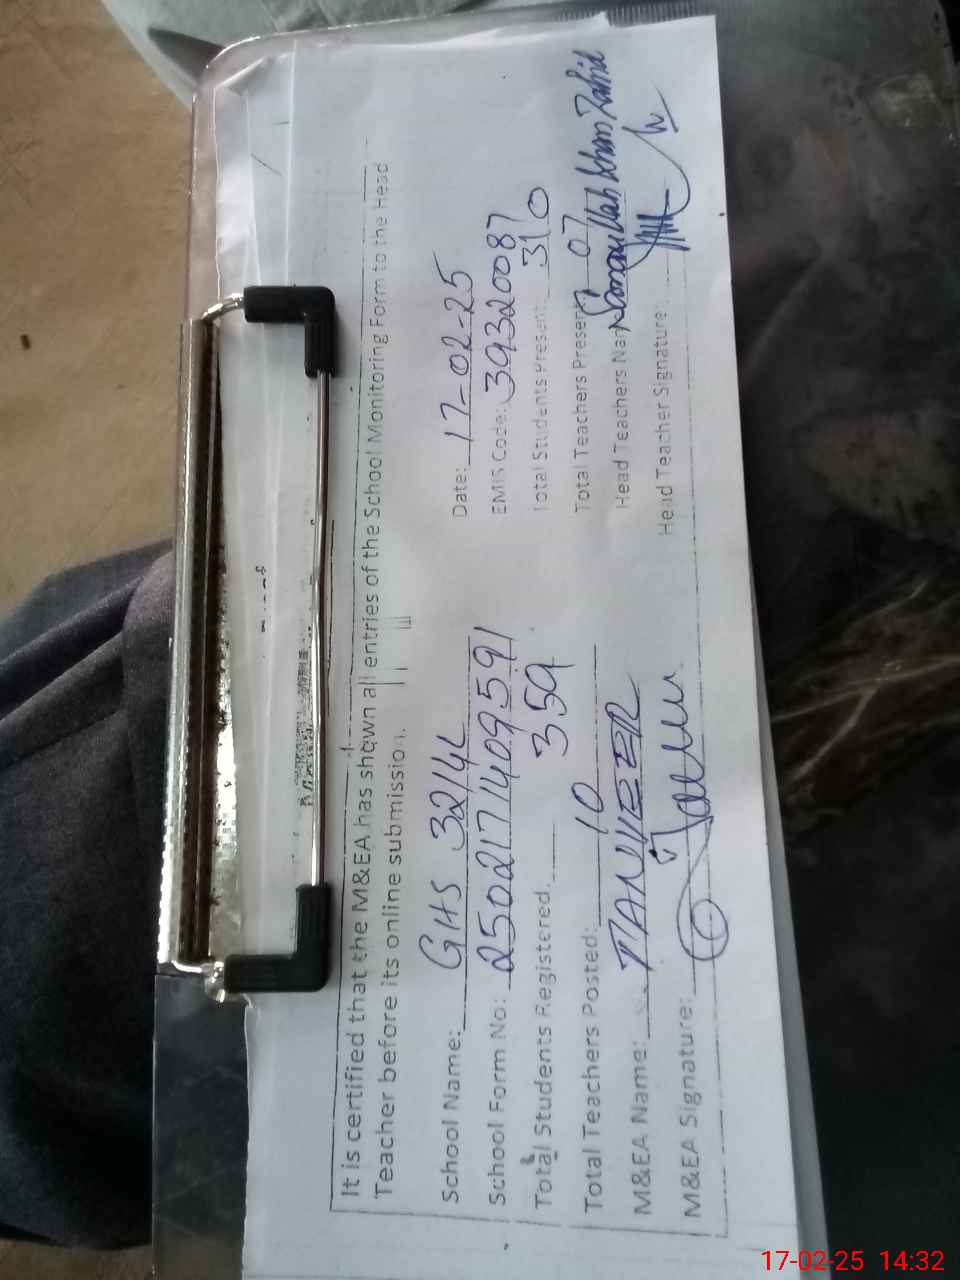 It is certified that the M&EA has shown all entries of the School Monitoring Form to the Head
Teacher before its online submission.
School Name: GHS 32/4L Date: 17-02-25
School Form No: 250217140959 EMIS Code: 39320087
Total Students Registered: 359 Total Students Present: 310
Total Teachers Posted: 10 Total Teachers Present: 07
M&EA Name: TANVEER Head Teachers Nam Khan Zahid
M&EA Signature: Head Teacher Signature:
17-02-25 14:32